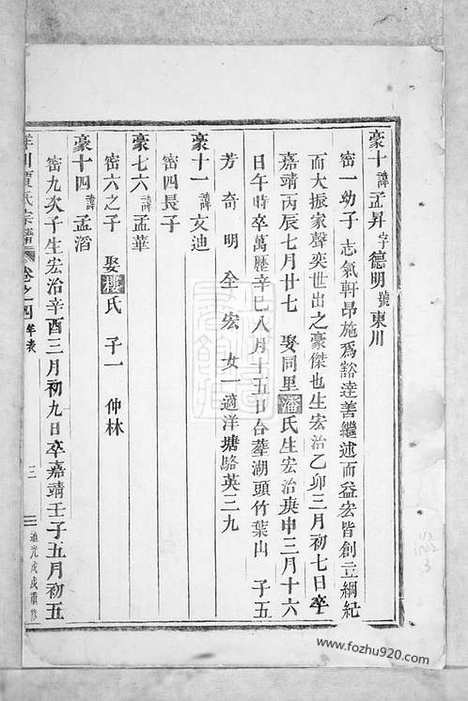 豪十諱孟昇字德明號東川
密一幼子志氣軒昂施爲豁達善繼述而益宏皆創立綱紀
而大振家聲奕世出之豪傑也生宏治乙卯三月初七日卒
嘉靖丙辰七月廿七娶同里潘氏生宏治庚申三月十六
日午時卒萬歷辛巳八月十五日合塟湖頭竹葉山子五
芳奇明全宏女一適洋塘駱英三九
豪十一諱文迪
密四長子
豪七六諱孟華
密六之子娶樓氏子一仲林
豪十四諱孟滔
密九次子生宏治辛酉三月初九日卒嘉靖壬子五月初五
川賈氏宗譜
卷之四年表
三
道光戊戌重修
www.fozhu920.com